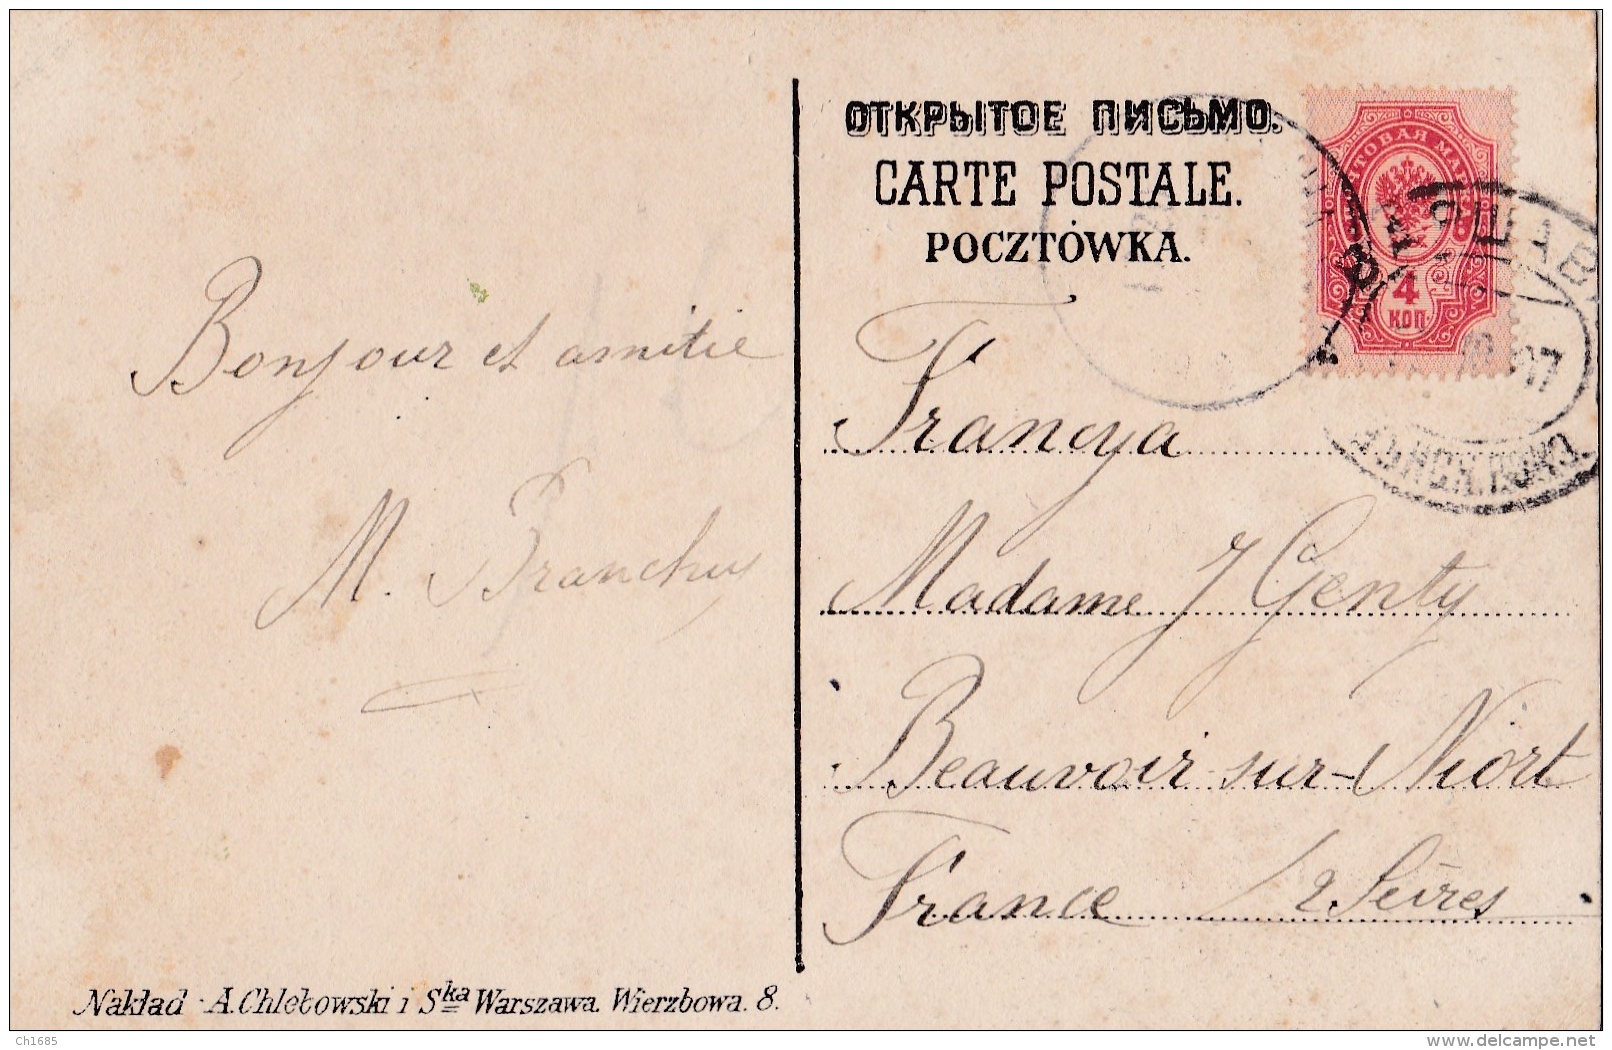 ОТКРЫТОЕ ПИСЬМО.
CARTE POSTALE.
POCZTÓWKA.
МАР
4
КОП.
ШАВ
07
Bonjour et amitié
M. Branchuy
Francya
Madame J Genty
Beauvoir-sur-Niort
France / 2 Sèvres
Nakład A. Chlebowski i Ska Warszawa. Wierzbowa. 8.
Ch1685
delcampe.net